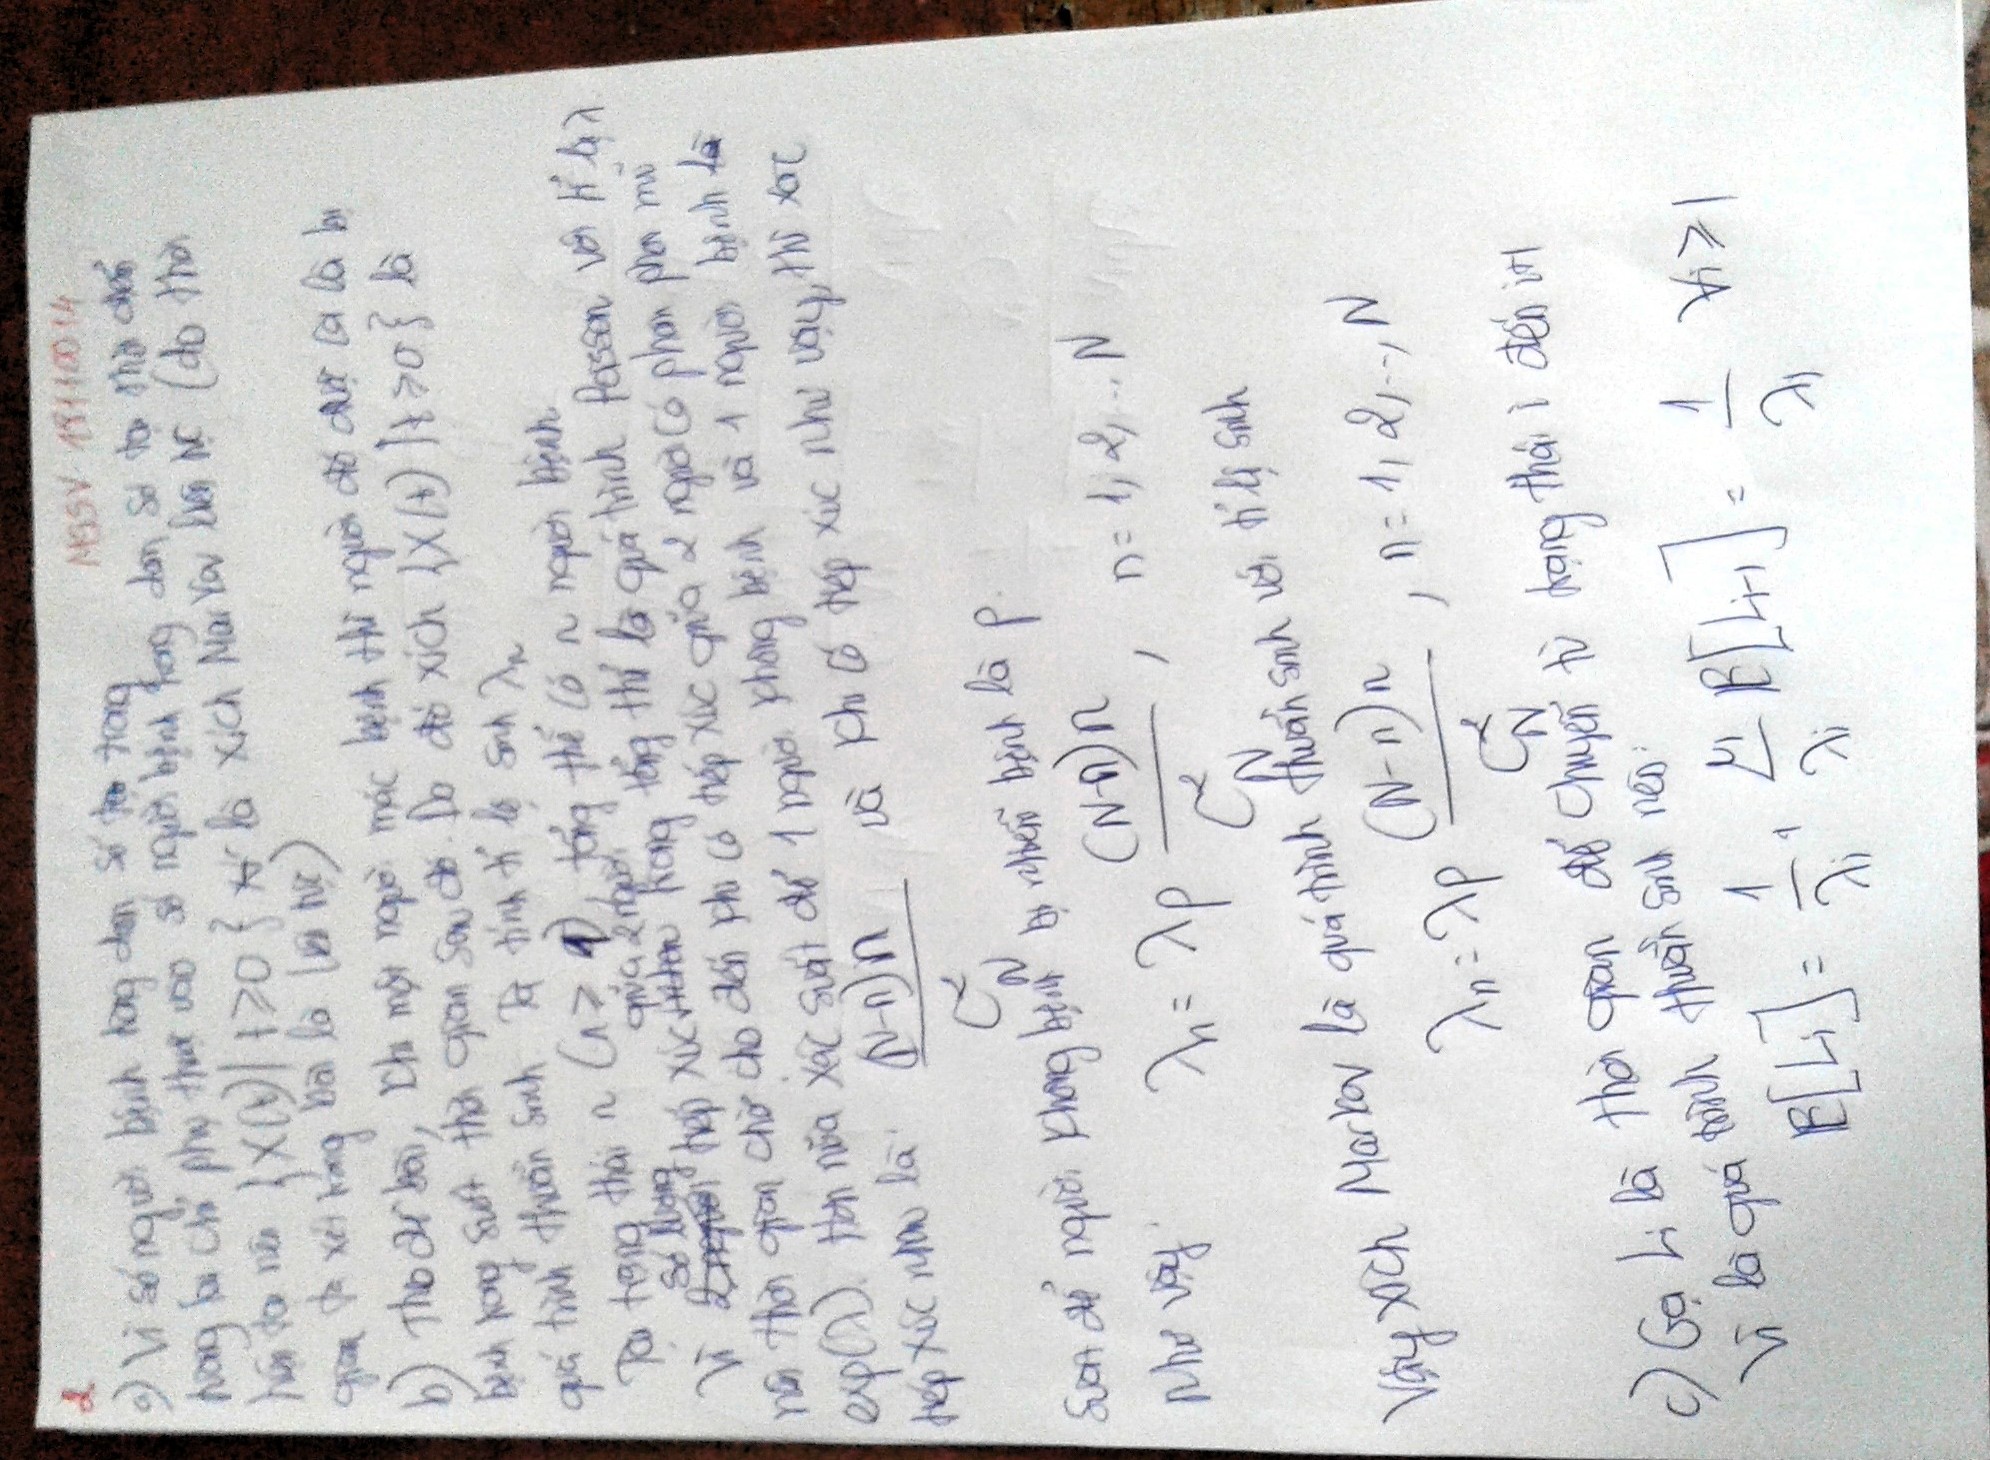 2
MSSV 18110014
a) Vì số người bệnh trong dân số trong
tương lai chỉ phụ thuộc vào số người bệnh trong dân số tại thời điểm
hiện tại nên {X(t) | t ≥ 0} là xích Markov liên tục (do thời
gian ta xét trong bài là liên tục)
b) Theo đề bài, khi một người mắc bệnh thì người đó được coi là bị
bệnh trong suốt thời gian sau đó. Do đó xích {X(t) | t ≥ 0} là
quá trình thuần sinh. Ta tính tỉ lệ sinh λn
Tại trạng thái n (n ≥ 1), tổng thể có n người bệnh.
Vì số lượng tiếp xúc giữa 2 người trong tổng thể là quá trình Poisson với tỉ lệ λ
nên thời gian chờ cho đến khi có tiếp xúc giữa 2 người có phân phối mũ
exp(λ). Hơn nữa xác suất để 1 người không bệnh và 1 người bệnh
tiếp xúc nhau là (N-n)n / C²_N và khi có tiếp xúc như vậy, thì xác
suất để người không bệnh bị nhiễm bệnh là p.
Như vậy: λn = λp (N-n)n / C²_N , n = 1, 2, ... N
Vậy xích Markov là quá trình thuần sinh với tỉ lệ sinh
λn = λp (N-n)n / C²_N , n = 1, 2, ..., N
c) Gọi Li là thời gian để chuyển từ trạng thái i đến i+1
Vì là quá trình thuần sinh nên:
E[Li] = 1/λi + μi/λi E[Li-1] = 1/λi ∀i ≥ 1